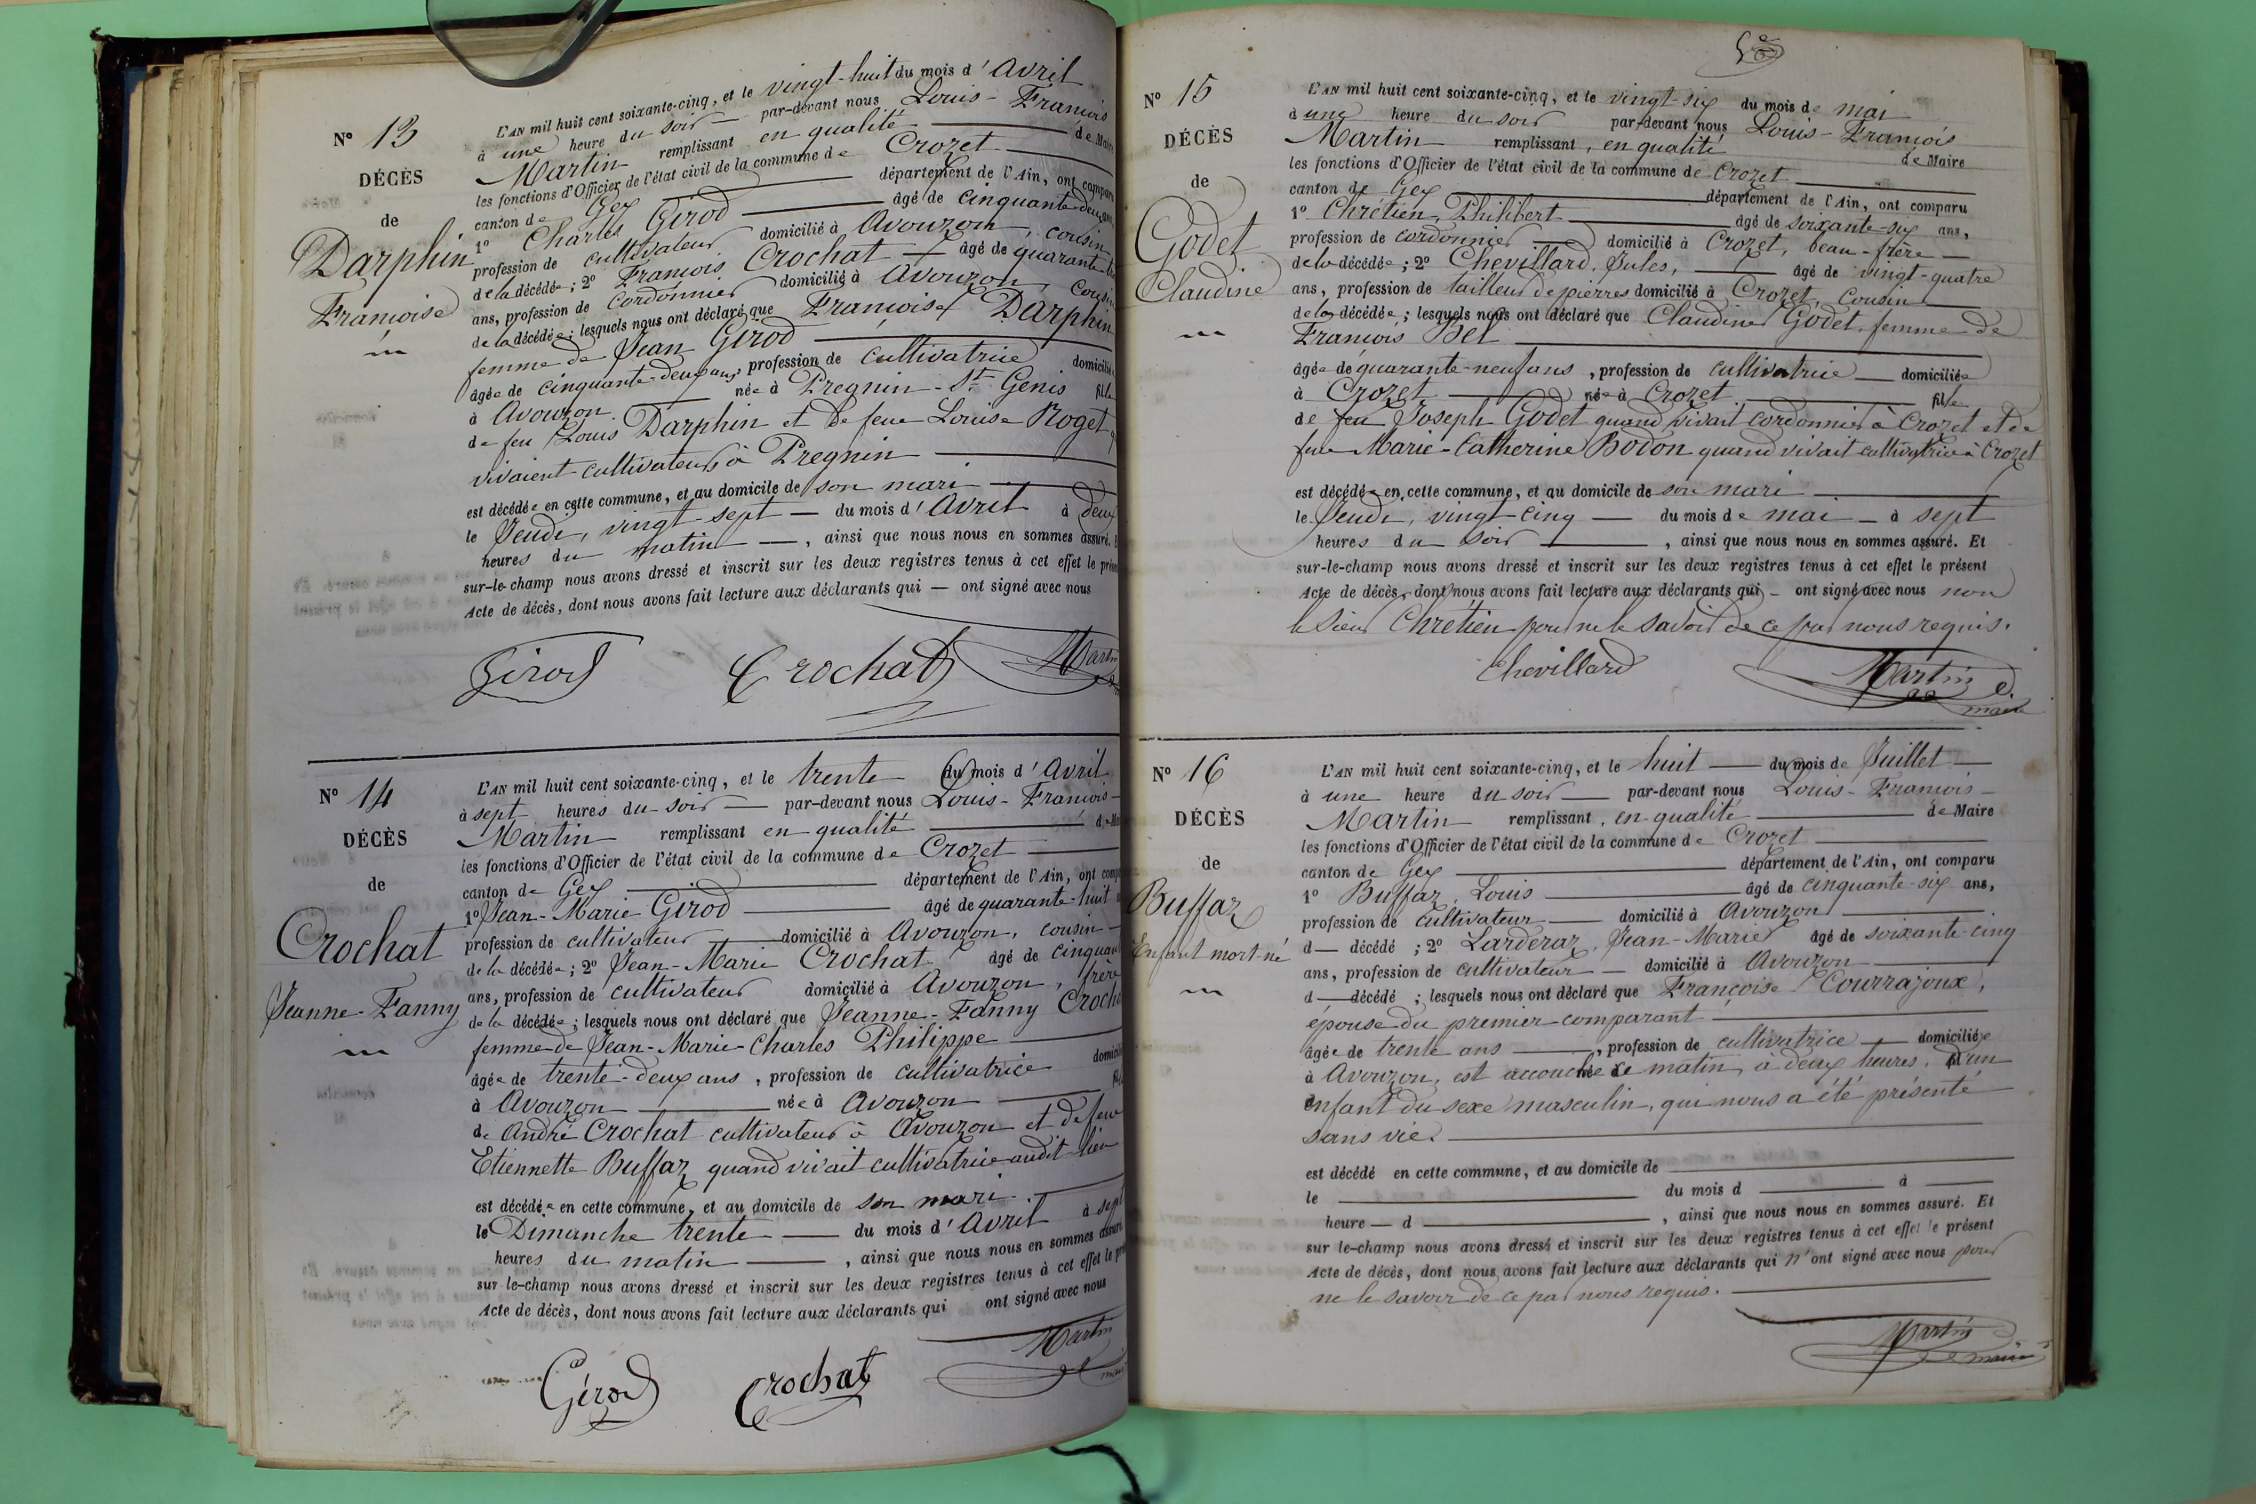 N° 13
DÉCÈS
de
Darphin
Françoise
L'AN mil huit cent soixante-cinq, et le vingt-huit du mois d'Avril
à une heure du soir par-devant nous Louis-François
Martin remplissant en qualité de Maire
les fonctions d'Officier de l'état civil de la commune de Crozet
canton de Gex département de l'Ain, ont comparu
1° Charles Girod âgé de cinquante-deux ans
profession de cultivateur domicilié à Avouzon, cousin
de la décédée; 2° François Crochat âgé de quarante
ans, profession de cordonnier domicilié à Avouzon, cousin
de la décédée; lesquels nous ont déclaré que Françoise Darphin
femme de Jean Girod
âgée de cinquante-deux ans, profession de cultivatrice domiciliée
à Avouzon née à Pregnin-St-Genis fille
de feu Louis Darphin et de feue Louise Roget
vivaient cultivateurs à Pregnin
est décédée en cette commune, et au domicile de son mari
le Jeudi, vingt-sept du mois d'Avril à deux
heures du matin, ainsi que nous nous en sommes assuré.
sur-le-champ nous avons dressé et inscrit sur les deux registres tenus à cet effet le présent
Acte de décès, dont nous avons fait lecture aux déclarants qui — ont signé avec nous
Girod Crochat Martin
N° 14
DÉCÈS
de
Crochat
Jeanne-Fanny
L'AN mil huit cent soixante-cinq, et le trente du mois d'Avril
à sept heures du soir par-devant nous Louis-François
Martin remplissant en qualité de Maire
les fonctions d'Officier de l'état civil de la commune de Crozet
canton de Gex département de l'Ain, ont comparu
1° Jean-Marie Girod âgé de quarante-huit
profession de cultivateur domicilié à Avouzon, cousin
de la décédée; 2° Jean-Marie Crochat âgé de cinquante
ans, profession de cultivateur domicilié à Avouzon, frère
de la décédée; lesquels nous ont déclaré que Jeanne-Fanny Crochat
femme de Jean-Marie-Charles Philippe
âgée de trente-deux ans, profession de cultivatrice domiciliée
à Avouzon née à Avouzon fille
de André Crochat cultivateur à Avouzon et de feue
Etiennette Buffaz quand vivait cultivatrice audit lieu
est décédée en cette commune, et au domicile de son mari
le Dimanche trente du mois d'Avril à sept
heures du matin, ainsi que nous nous en sommes assuré
sur le-champ nous avons dressé et inscrit sur les deux registres tenus à cet effet le présent
Acte de décès, dont nous avons fait lecture aux déclarants qui ont signé avec nous
Gérod Crochat Martin
N° 15
DÉCÈS
de
Godet
Claudine
L'AN mil huit cent soixante-cinq, et le vingt-six du mois de mai
à une heure du soir par-devant nous Louis-François
Martin remplissant, en qualité de Maire
les fonctions d'Officier de l'état civil de la commune de Crozet
canton de Gex département de l'Ain, ont comparu
1° Chrétien, Philibert âgé de soixante-six ans,
profession de cordonnier domicilié à Crozet, beau-frère
de la décédée; 2° Chevillard, Jules, âgé de vingt-quatre
ans, profession de tailleur de pierres domicilié à Crozet, cousin
de la décédée; lesquels nous ont déclaré que Claudine Godet, femme de
François Bel
âgée de quarante-neuf ans, profession de cultivatrice domiciliée
à Crozet née à Crozet fille
de feu Joseph Godet quand vivait cordonnier à Crozet et de
feue Marie-Catherine Bodon quand vivait cultivatrice à Crozet
est décédée en cette commune, et au domicile de son mari
le Jeudi, vingt-cinq du mois de mai à sept
heures du soir, ainsi que nous nous en sommes assuré. Et
sur-le-champ nous avons dressé et inscrit sur les deux registres tenus à cet effet le présent
Acte de décès, dont nous avons fait lecture aux déclarants qui — ont signé avec nous non
le sieur Chrétien pour ne le savoir de ce par nous requis.
Chevillard Martin
maire
N° 16
DÉCÈS
de
Buffaz
Enfant mort-né
L'AN mil huit cent soixante-cinq, et le huit du mois de Juillet
à une heure du soir par-devant nous Louis-François
Martin remplissant, en qualité de Maire
les fonctions d'Officier de l'état civil de la commune de Crozet
canton de Gex département de l'Ain, ont comparu
1° Buffaz, Louis âgé de cinquante-six ans,
profession de cultivateur domicilié à Avouzon
d— décédé; 2° Larderaz, Jean-Marie âgé de soixante-cinq
ans, profession de cultivateur domicilié à Avouzon
d— décédé; lesquels nous ont déclaré que Françoise Courrajoux,
épouse du premier comparant
âgée de trente ans, profession de cultivatrice domiciliée
à Avouzon, est accouchée ce matin, à deux heures, d'un
enfant du sexe masculin, qui nous a été présenté
sans vie.
est décédé en cette commune, et au domicile de
le du mois d à
heure — d, ainsi que nous nous en sommes assuré. Et
sur le-champ nous avons dressé et inscrit sur les deux registres tenus à cet effet le présent
Acte de décès, dont nous avons fait lecture aux déclarants qui n'ont signé avec nous pour
ne le savoir de ce par nous requis.
Martin
maire